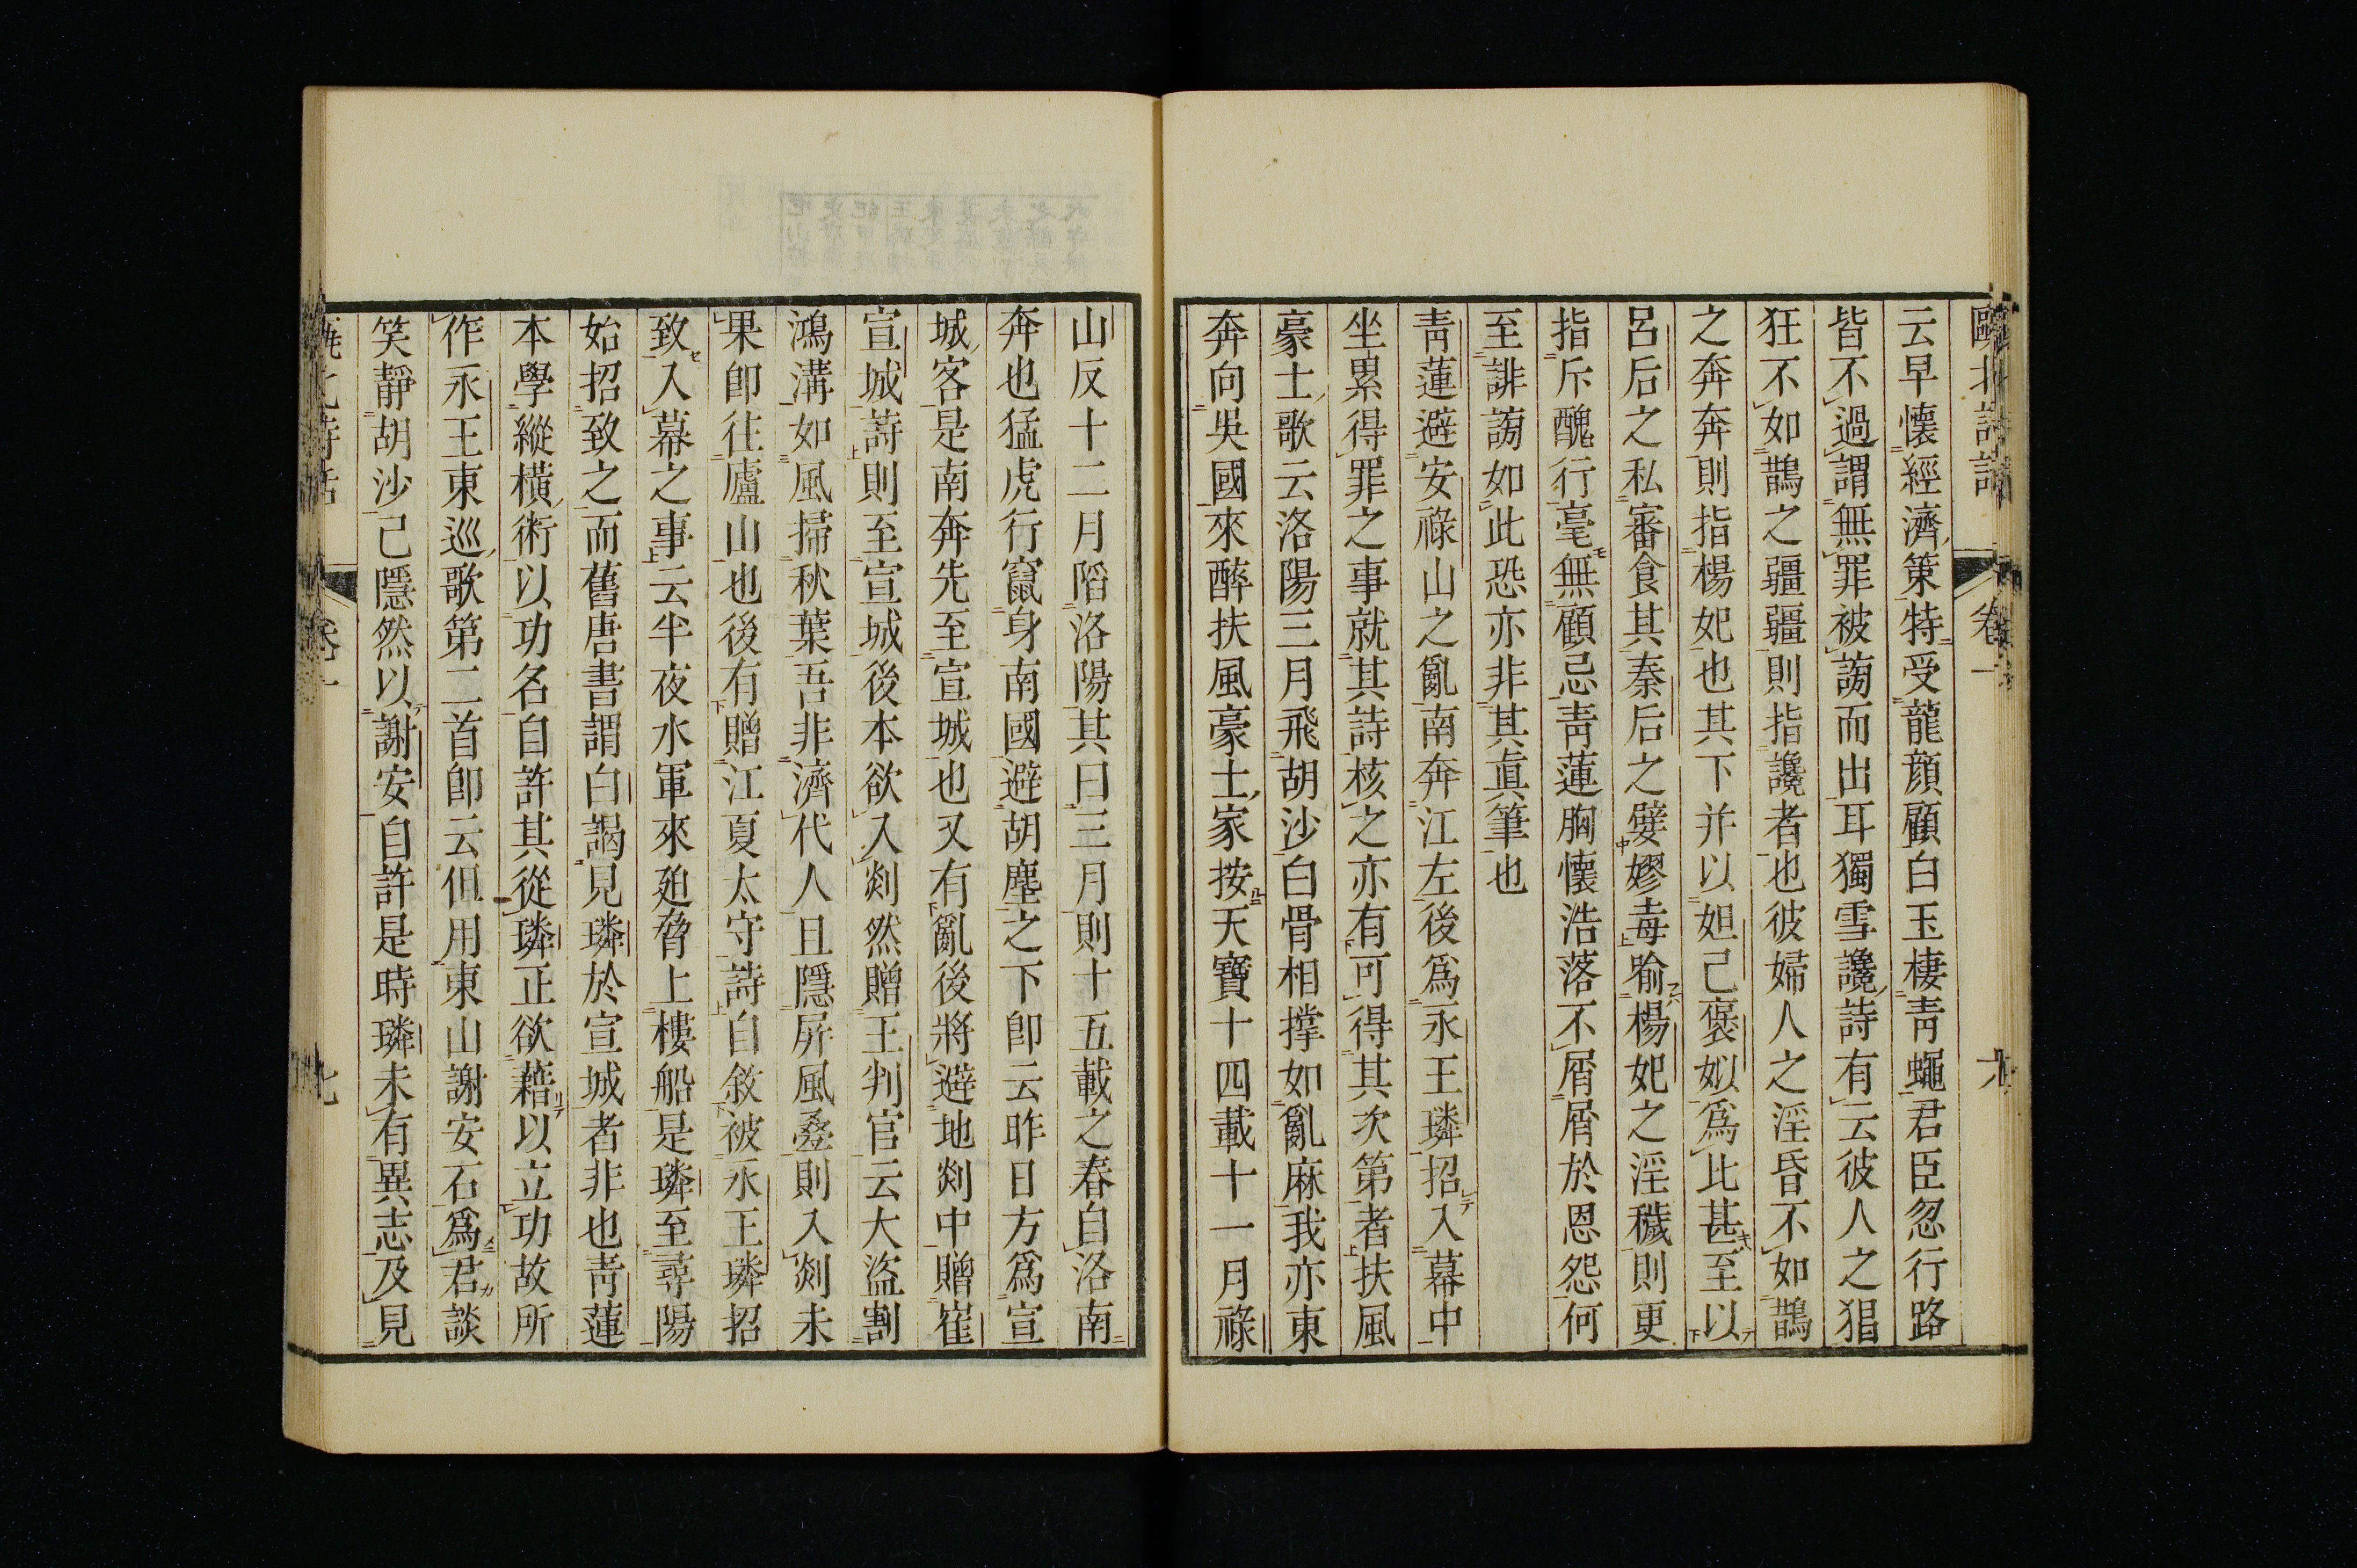 甌北詩話 卷一 六
云早懷經濟策特受龍顔顧白玉棲靑蠅君臣忽行路
皆不過謂無罪被謗而出耳獨雪讒詩有云彼人之猖
狂不如鵲之疆疆則指讒者也彼婦人之淫昏不如鵲
之奔奔則指楊妃也其下并以妲己褒姒爲比甚至以
呂后之私審食其秦后之嬖嫪毐喻楊妃之淫穢則更
指斥醜行毫無顧忌靑蓮胸懷浩落不屑屑於恩怨何
至誹謗如此恐亦非其眞筆也
靑蓮避安祿山之亂南奔江左後爲永王璘招入幕中
坐累得罪之事就其詩核之亦有可得其次第者扶風
豪士歌云洛陽三月飛胡沙白骨相撐如亂麻我亦東
奔向吳國來醉扶風豪士家按天寶十四載十一月祿
山反十二月陷洛陽其曰三月則十五載之春白洛南
奔也猛虎行竄身南國避胡塵之下卽云昨日方爲宣
城客是南奔先至宣城也又有亂後將避地剡中贈崔
宣城詩則至宣城後本欲入剡然贈王判官云大盜割
鴻溝如風掃秋葉吾非濟代人且隱屛風疊則入剡未
果卽往廬山也後有贈江夏太守詩自敘被永王璘招
致入幕之事云半夜水軍來廹脅上樓船是璘至尋陽
始招致之而舊唐書謂白謁見璘於宣城者非也靑蓮
本學縱橫術以功名自許其從璘正欲藉以立功故所
作永王東巡歌第二首卽云但用東山謝安石爲君談
笑靜胡沙己隱然以謝安自許是時璘未有異志及見
北詩話 卷一 七